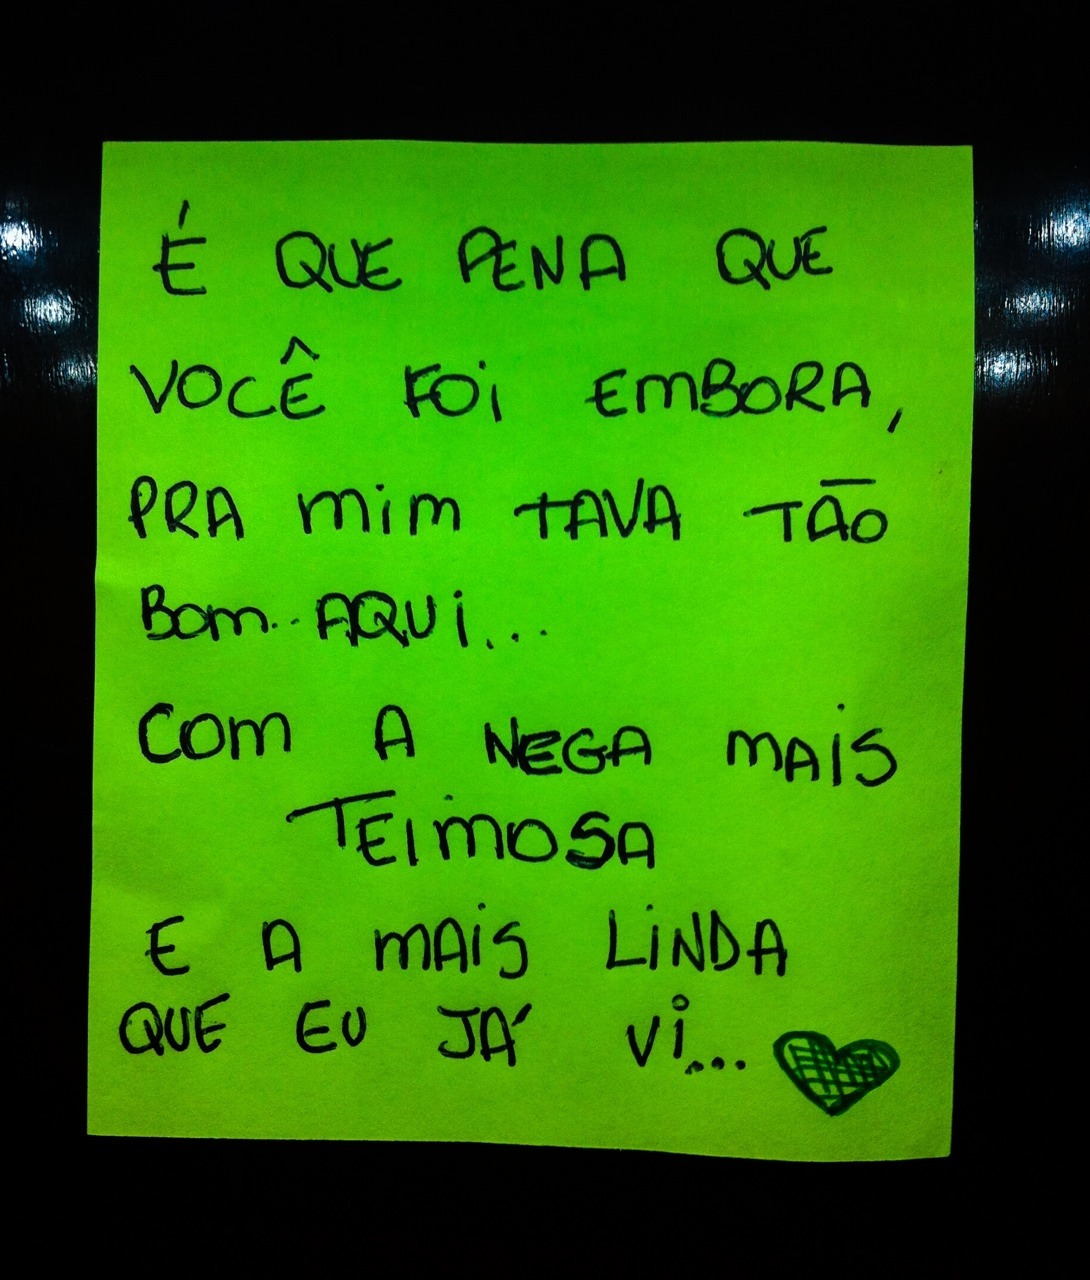 É QUE PENA QUE
VOCÊ FOI EMBORA,
PRA mim TAVA TÃO
Bom.. AQUI...
COM A NEGA MAIS
TEIMOSA
E A MAIS LINDA
QUE EU JÁ VI...